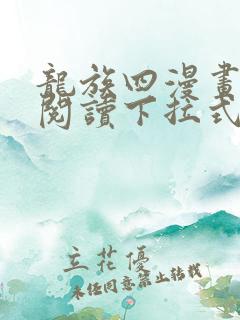 龍族四漫畫
閱讀下拉式
立花優
未經同意禁止轉載